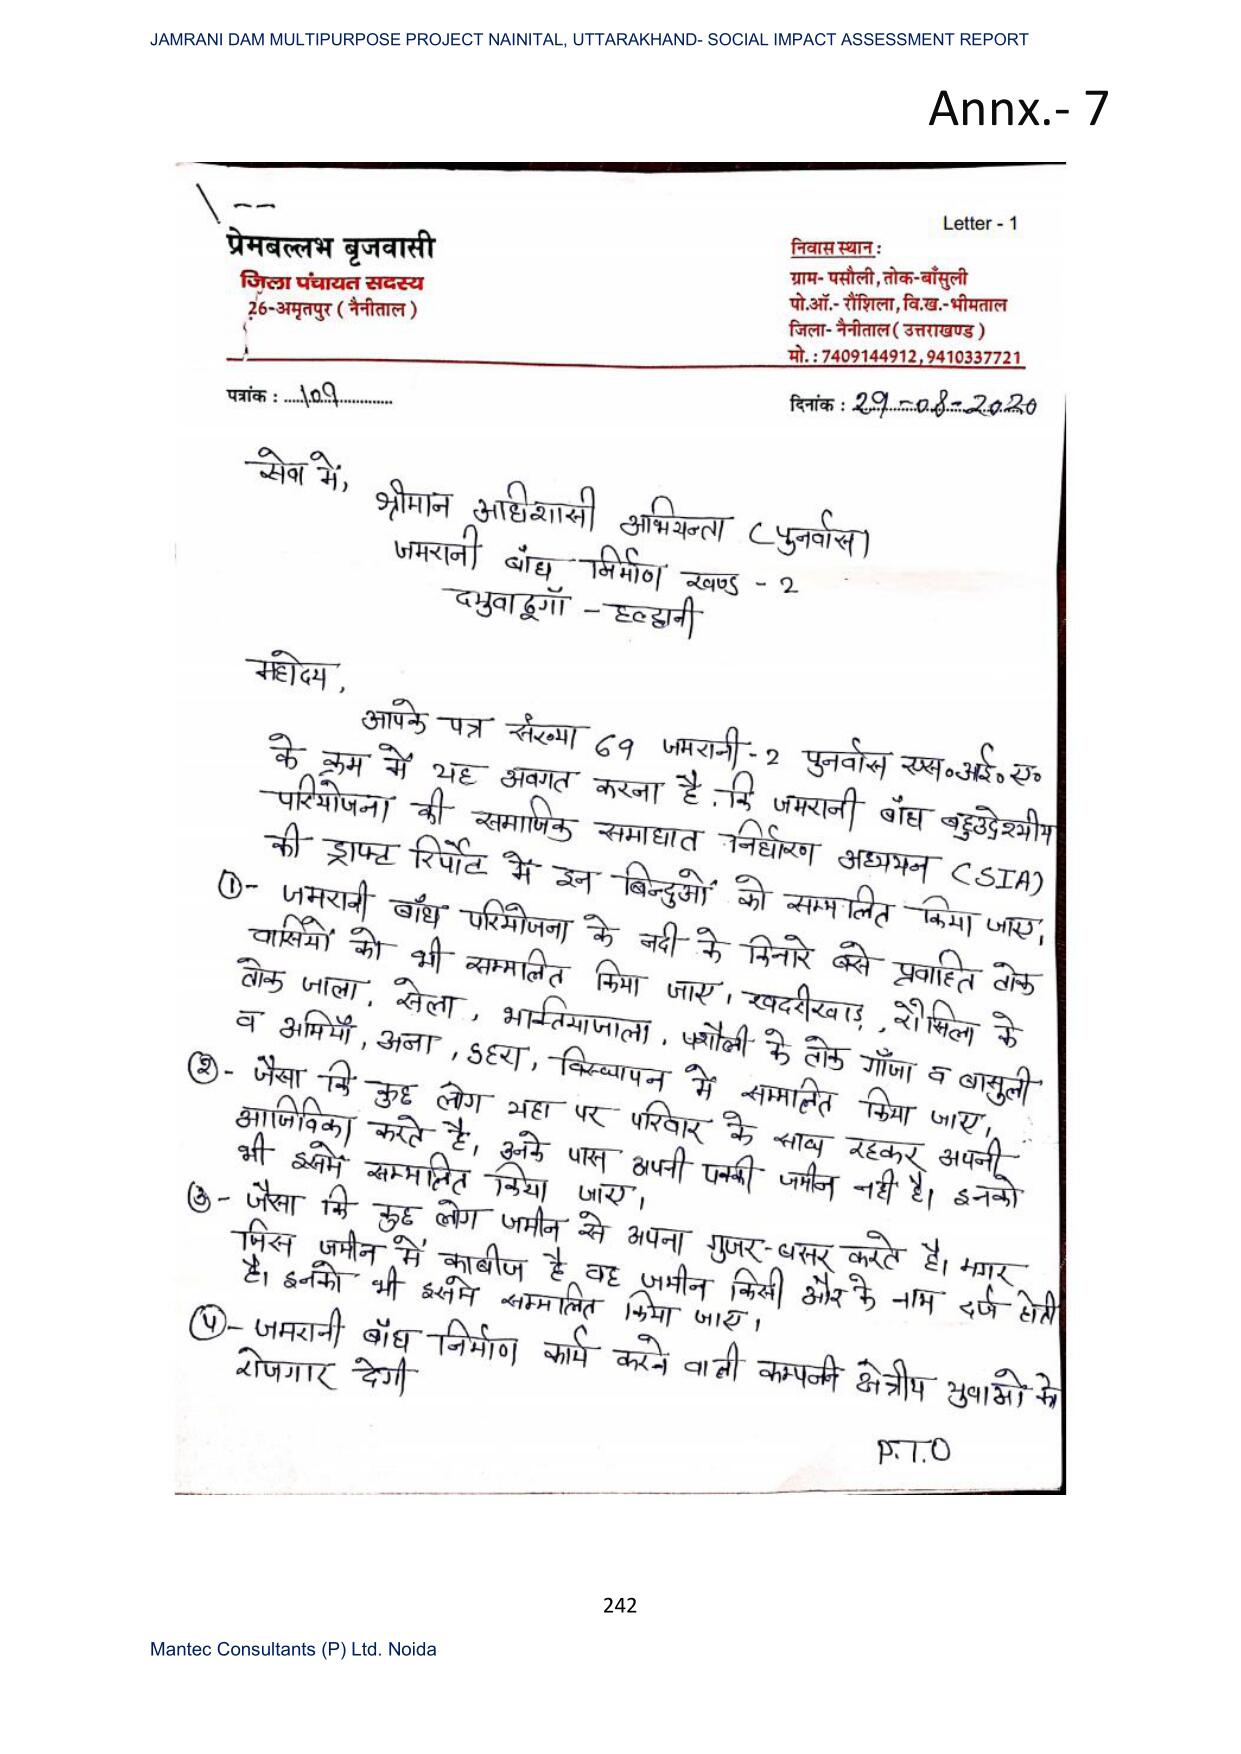 JAMRANI DAM MULTIPURPOSE PROJECT NAINITAL, UTTARAKHAND- SOCIAL IMPACT ASSESSMENT REPORT
Annx.- 7
Letter - 1
प्रेमबल्लभ बृजवासी
जिला पंचायत सदस्य
26-अमृतपुर ( नैनीताल )
निवास स्थान :
ग्राम- पसौली, तोक-बाँसुली
पो.ऑ.- रौंशिला, वि.ख.-भीमताल
जिला- नैनीताल ( उत्तराखण्ड )
मो. : 7409144912, 9410337721
पत्रांक : 109
दिनांक : 29-08-2020
सेवा में,
श्रीमान अधिशासी अभियन्ता (पुनर्वास)
जमरानी बाँध निर्माण खण्ड - 2
दमुवाढूगाँ - हल्द्वानी
महोदय,
आपके पत्र संख्या 69 जमरानी-2 पुनर्वास एस॰आई॰ए॰
के क्रम में यह अवगत करना है. कि जमरानी बाँध बहुउद्देश्यीय
परियोजना की समाजिक समाघात निर्धारण अध्ययन (SIA)
की ड्राफ्ट रिर्पोट में इन बिन्दुओं को सम्मलित किया जाए,
①- जमरानी बाँध परियोजना के नदी के किनारे बसे प्रवाहित तोक
वासियों को भी सम्मलित किया जाए। खदरीखाड़, रौसिला के
तोक जाला, सेला, पसौली के तोक गाँजा व बासुली
व अमियाँ, डहरा, विस्थापन में सम्मलित किया जाए,
②- जैसा कि कुछ लोग यहा पर परिवार के साथ रहकर अपनी
आजिविका करते है, उनके पास अपनी पक्की जमीन नही है। इनको
भी इसमें सम्मलित किया जाए,
③- जैसा कि कुछ लोग जमीन से अपना गुजर-बसर करते है। मगर
जिस जमीन में काबीज है वह जमीन किसी और के नाम दर्ज होती
है। इनको भी इसमे सम्मलित किया जाए,
④- जमरानी बाँध निर्माण कार्य करने वाली कम्पनी क्षेत्रीय युवाओं को
रोजगार देगी
P.T.O
242
Mantec Consultants (P) Ltd. Noida